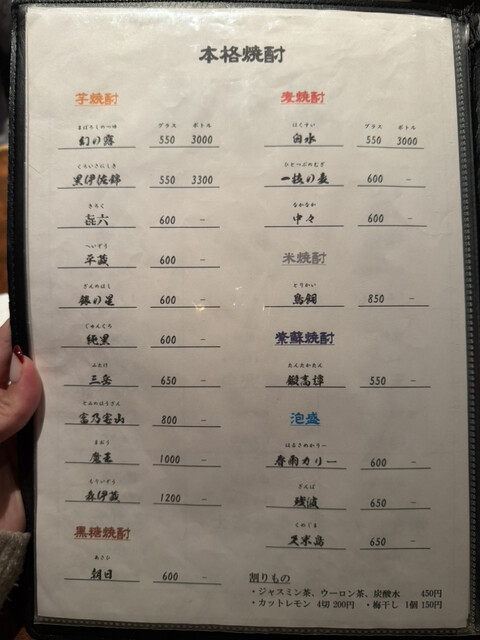 本格焼酎
芋焼酎
グラス ボトル
まぼろしのつゆ
幻の露 550 3000
くろいさにしき
黒伊佐錦 550 3300
きろく
㐂六 600 –
へいぞう
平蔵 600 –
ぎんのほし
銀の星 600 –
じゅんくろ
純黒 600 –
みたけ
三岳 650 –
とみのほうざん
富乃宝山 800 –
まおう
魔王 1000 –
もりいぞう
森伊蔵 1200 –
黒糖焼酎
あさひ
朝日 600 –
麦焼酎
グラス ボトル
はくすい
白水 550 3000
ひとつぶのむぎ
一粒の麦 600 –
なかなか
中々 600 –
米焼酎
とりかい
鳥飼 850 –
紫蘇焼酎
たんたかたん
鍛高譚 550 –
泡盛
はるさめかりー
春雨カリー 600 –
ざんぱ
残波 650 –
くめじま
久米島 650 –
割りもの
・ジャスミン茶、ウーロン茶、炭酸水 450円
・カットレモン 4切 200円 ・梅干し 1個 150円